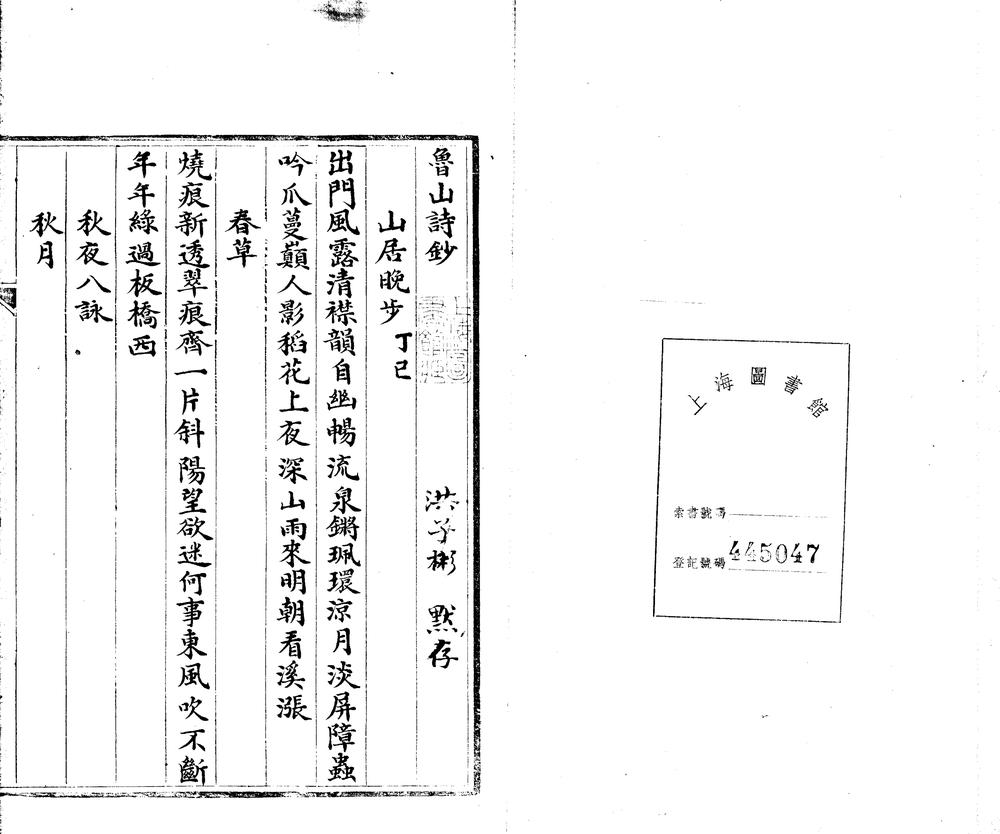 上海圖書館
索書號碼
登記號碼 445047
魯山詩鈔 洪子彬 默存
上海圖書館藏
山居晚步 丁巳
出門風露清襟韻自幽暢流泉鏘珮環涼月淡屏障蟲
吟爪蔓巔人影稻花上夜深山雨來明朝看溪漲
春草
燒痕新透翠痕齊一片斜陽望欲迷何事東風吹不斷
年年綠過板橋西
秋夜八詠
秋月